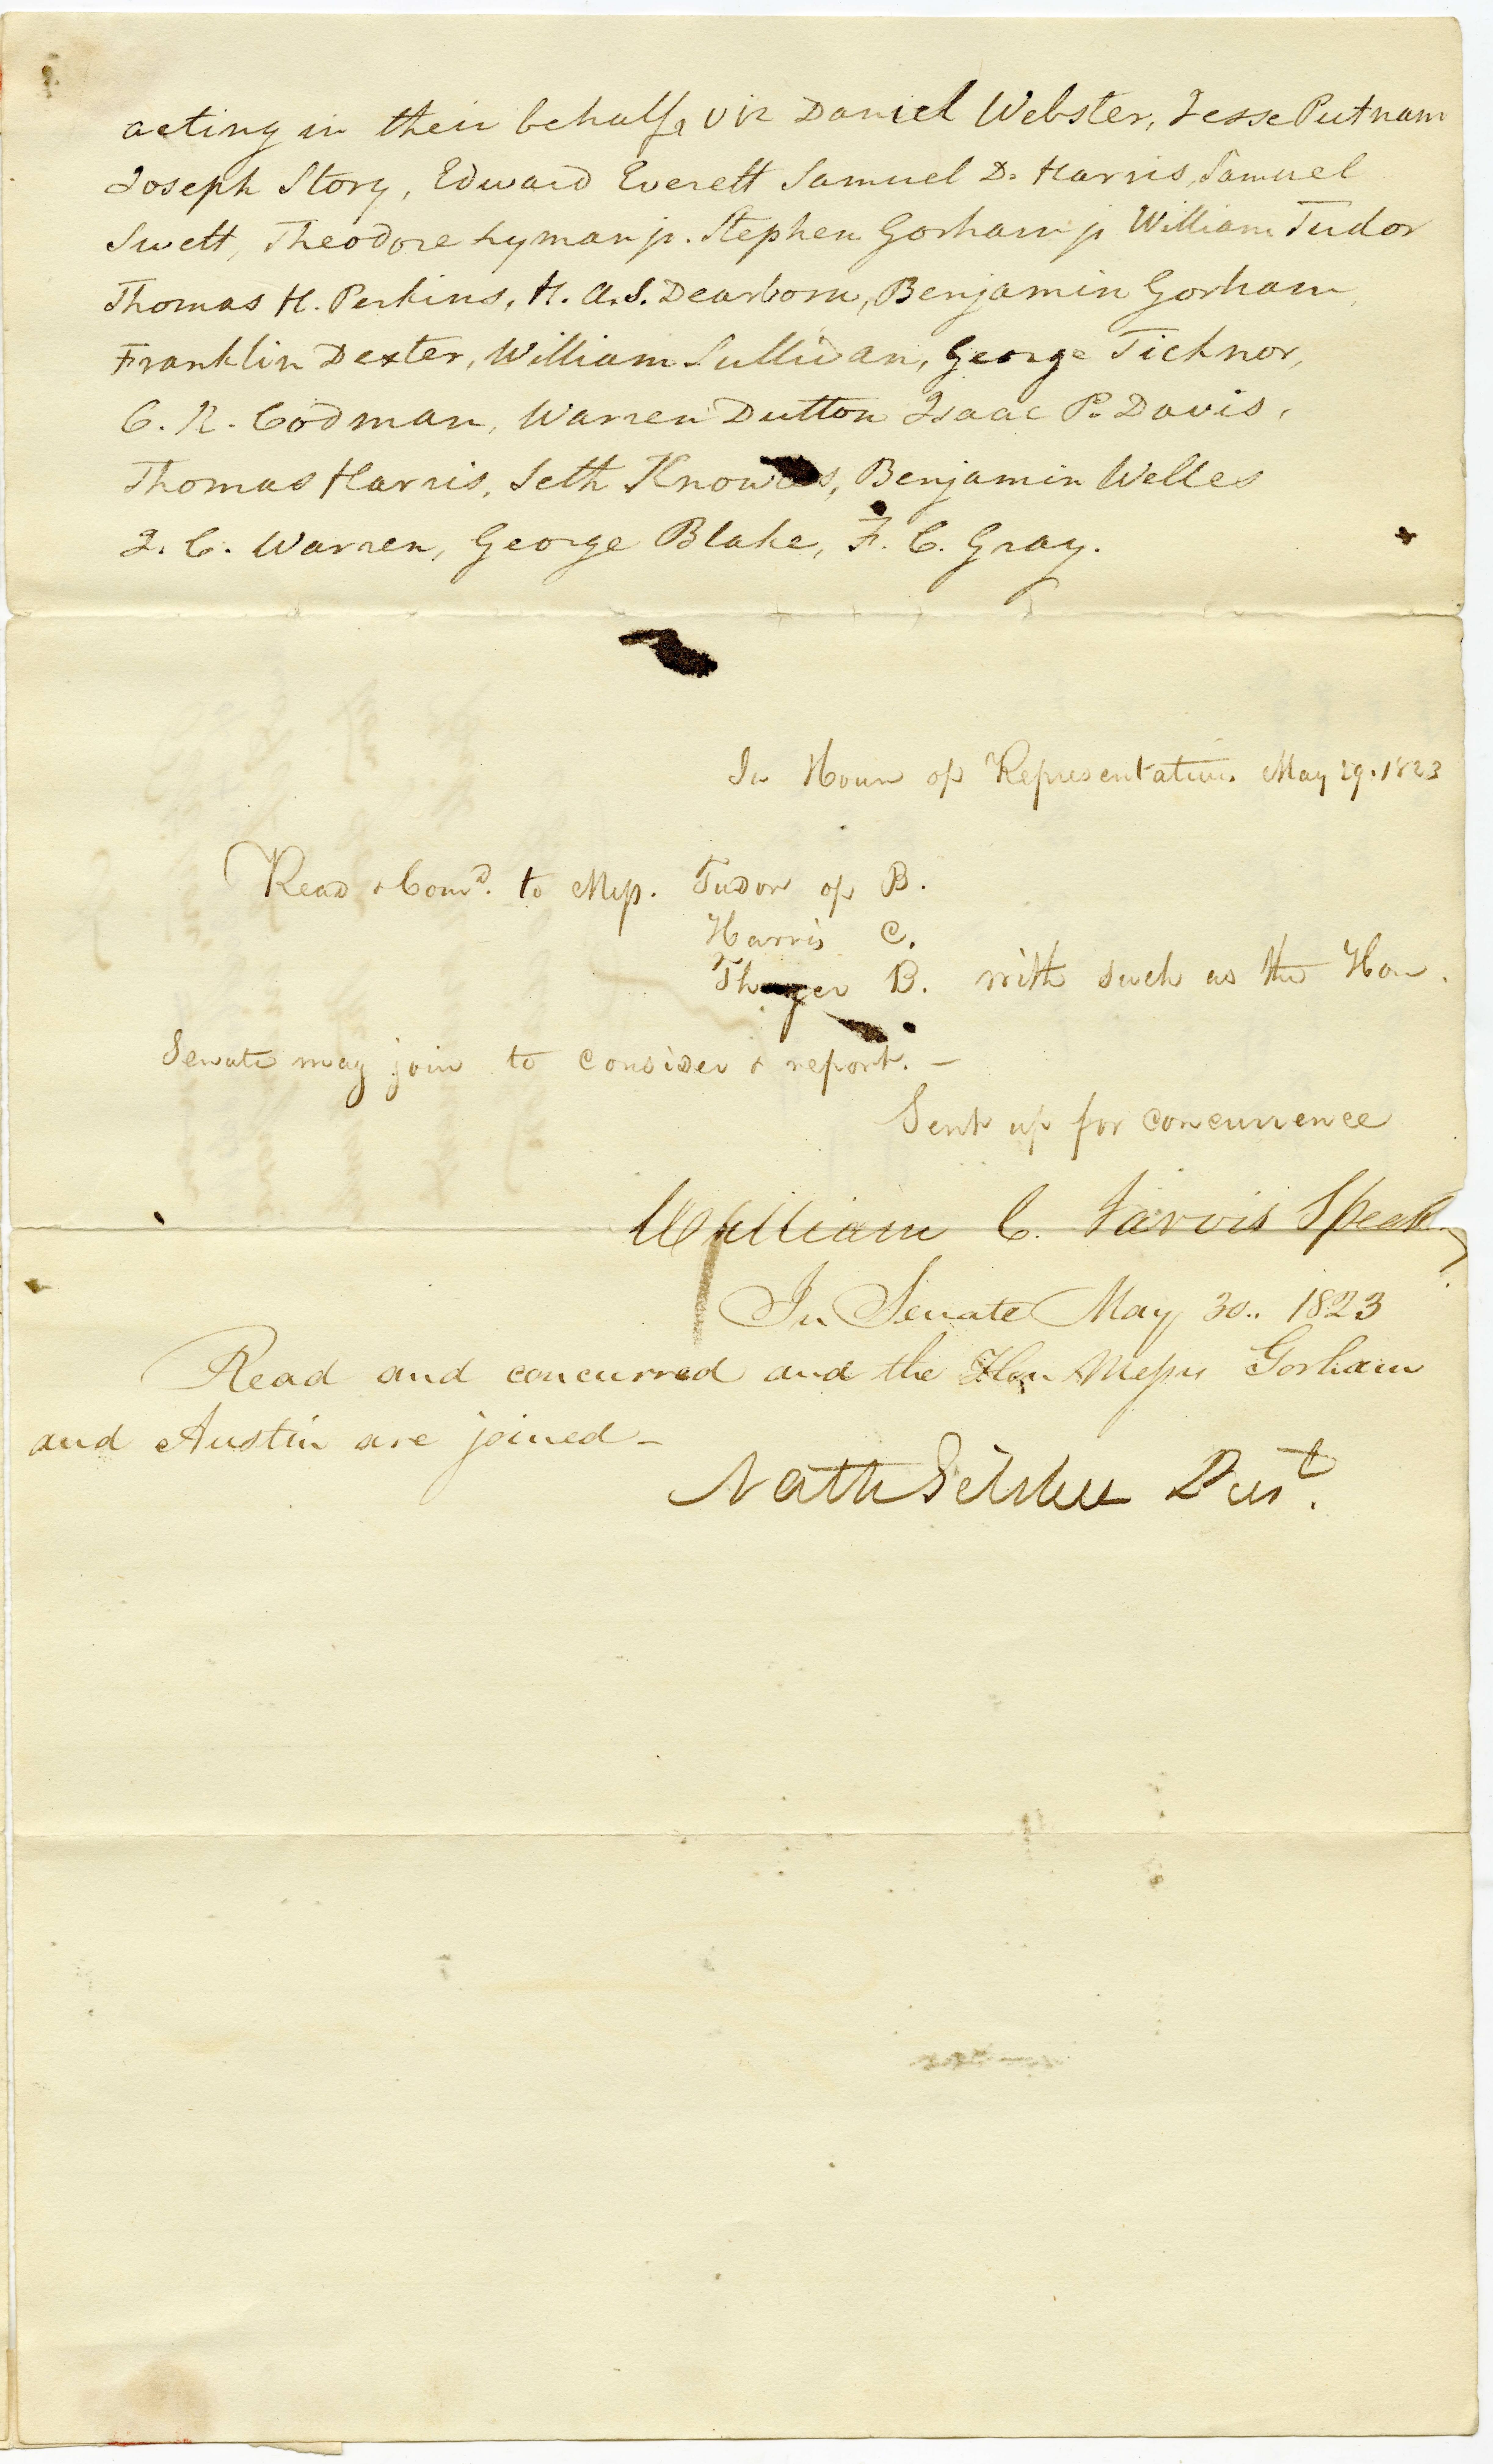 acting in their behalf, viz Daniel Webster, Jesse Putnam
Joseph Story, Edward Everett Samuel D. Harris, Samuel
Swett, Theodore Lyman jr. Stephen Gorham jr William Tudor
Thomas H. Perkins, H. A. S. Dearborn, Benjamin Gorham,
Franklin Dexter, William Sullivan, George Ticknor,
C. R. Codman, Warren Dutton Isaac P. Davis,
Thomas Harris, Seth Knowles, Benjamin Welles
J. C. Warren, George Blake, F. C. Gray.
In House of Representatives May 29. 1823
Read & Comd. to Mess. Tudor of B.
Harris C.
Thayer B. with such as the Hon.
Senate may join to consider & report. –
Sent up for concurrence
William C. Jarvis Speakr
In Senate May 30.. 1823
Read and concurred and the Hon Messrs Gorham
and Austin are joined –
Nathl Silsbee Prest.